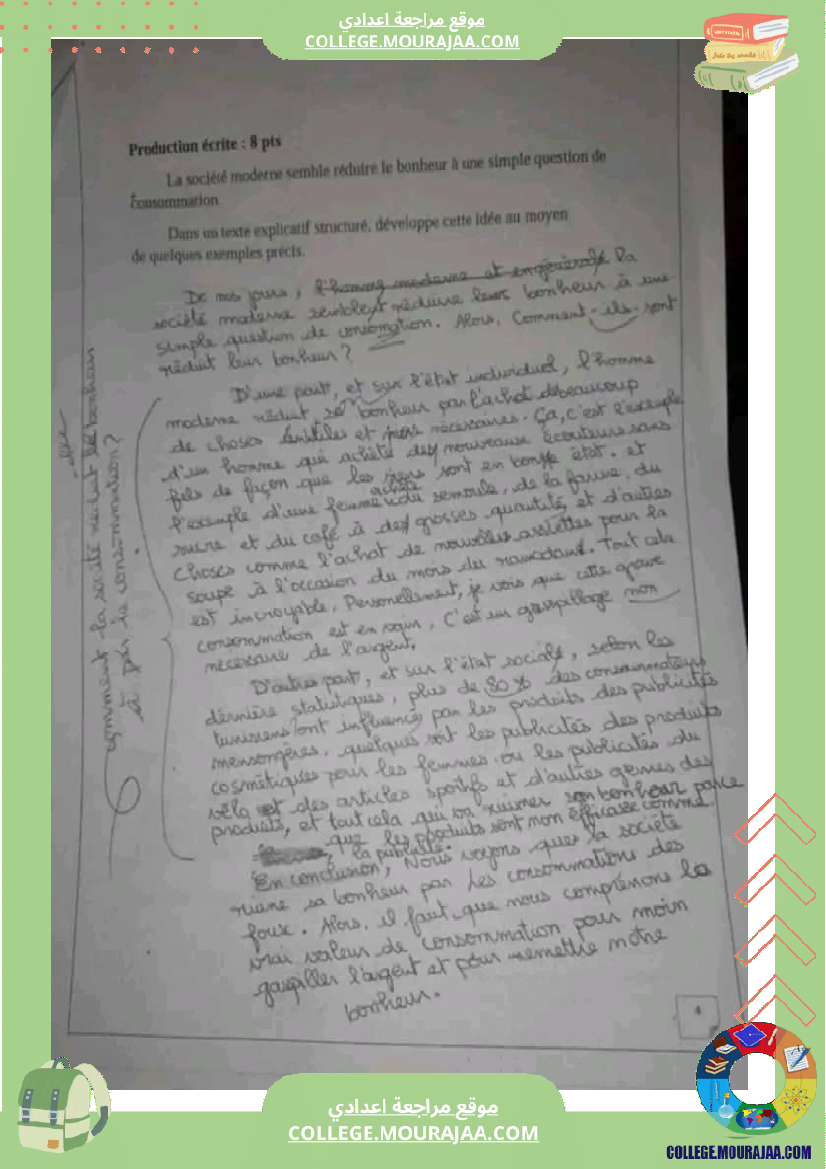 موقع مراجعة اعدادي
COLLEGE.MOURAJAA.COM
Production écrite : 8 pts
La société moderne semble réduire le bonheur à une simple question de
consommation.
Dans un texte explicatif structuré, développe cette idée au moyen
de quelques exemples précis.
De nos jours, l'homme moderne et en général la
société moderne semblent réduire leurs bonheur à une
simple question de consomation. Alors, Comment-ils-sont
réduit leur bonheur ?
D'une part, et sur l'état individuel, l'homme
moderne réduit son bonheur par l'achat de beaucoup
de choses inutiles et nécessaires. Ça, c'est l'exemple
d'un homme qui achète des nouveaux écouteurs sans
fils de façon que les siens sont en bonne état. et
l'exemple d'une femme achète du semoule, de la farine, du
sucre et du café à des grosses quantité et d'autres
choses comme l'achat de nouvelles assiettes pour la
soupe à l'occasion du mois du ramadan. Tout cela
est incroyable, Personellement, je vois que cette grave
consommation est en vain, C'est un gaspillage non
nécessaire de l'argent.
D'autres part, et sur l'état sociale, selon les
dérnière statistiques, plus de 80 % des consommateurs
tunisiens ont influencé par les produits des publicités
mensongères, quelques soit les publicités des produits
cosmétiques pour les femmes ou les publicités du
vélo et des articles sportifs et d'autres genres des
produits, et tout cela qui va ruiner son bonheur parce
que les produits sont non efficace comme
la publicité.
En conclusion, Nous voyons que la société
ruine sa bonheur par les consommations des
foux. Alors, il faut que nous comprenons la
vrai valeur de consommation pour moin
gaspiller l'argent et pour remettre notre
bonheur.
comment la société réduit le bonheur
par la consommation ?
4
موقع مراجعة اعدادي
COLLEGE.MOURAJAA.COM
COLLEGE.MOURAJAA.COM